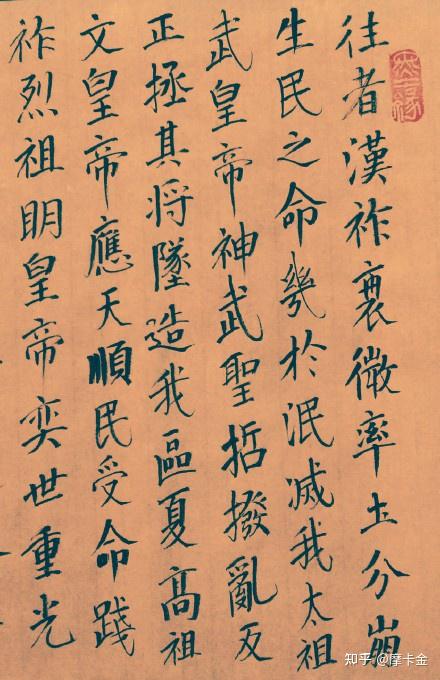 往者漢祚衰微率土分崩
生民之命幾於泯滅我太祖
武皇帝神武聖哲撥亂反
正拯其將墜造我區夏高祖
文皇帝應天順民受命踐
祚烈祖明皇帝奕世重光
知乎 @摩卡金